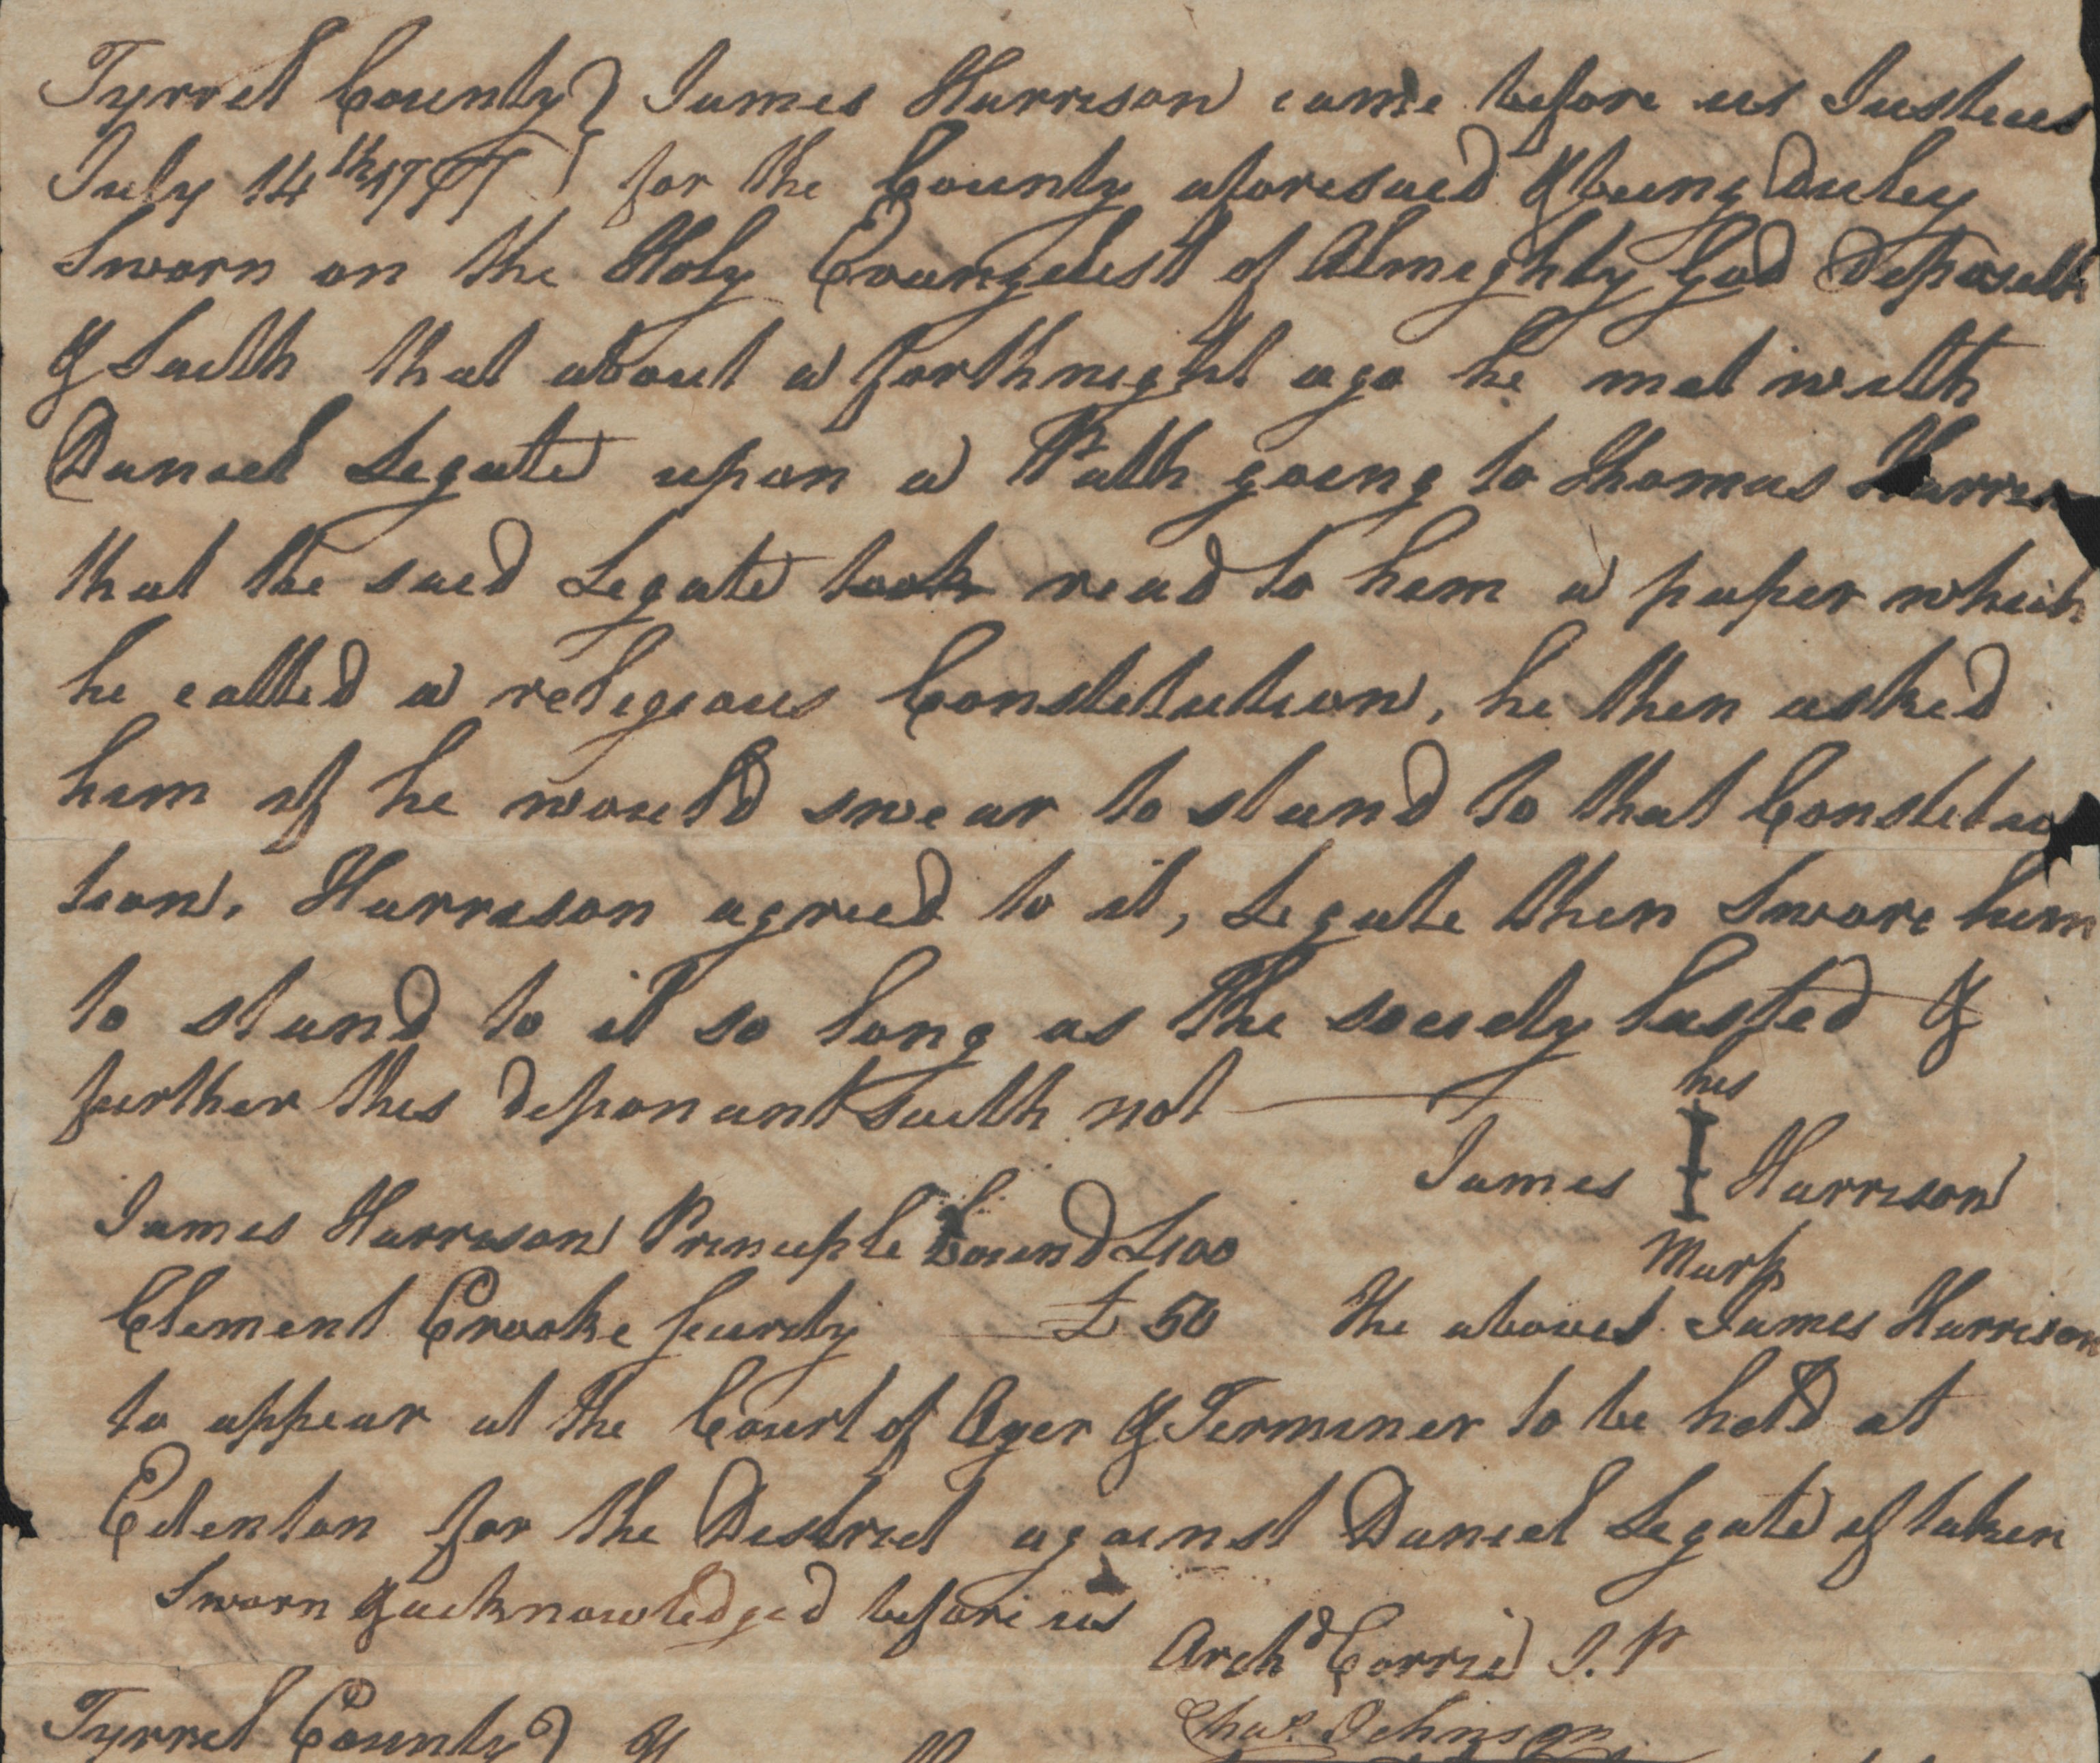 Tyrrel County } James Harrison came before us Justices
July 14th 1777 } for the County aforesaid & being Duley
Sworn on the Holy Evangelist of Almighty God Deposeth
& Saith that about a forthneght ago he met with
Daniel Legate upon a Path going to Thomas Harris
that the said Legate took read to him a paper which
he called a religious Constitution, he then asked
him if he would swear to stand to that Constitu
tion, Harrison agreed to it, Legate then Swore him
to stand to it so long as the society lasted &
further this deponant Saith not
his
James I Harrison
Mark
James Harrison Principle bound £100
Clement Crooke Scurety £50 the aboves James Harrison
to appear at the Court of Oyer & Terminer to be held at
Edenton for the District against Daniel Legate if taken
Sworn & acknowledged before us
Archd Corrie J.P
Chas. Johnson
Tyrrel County }